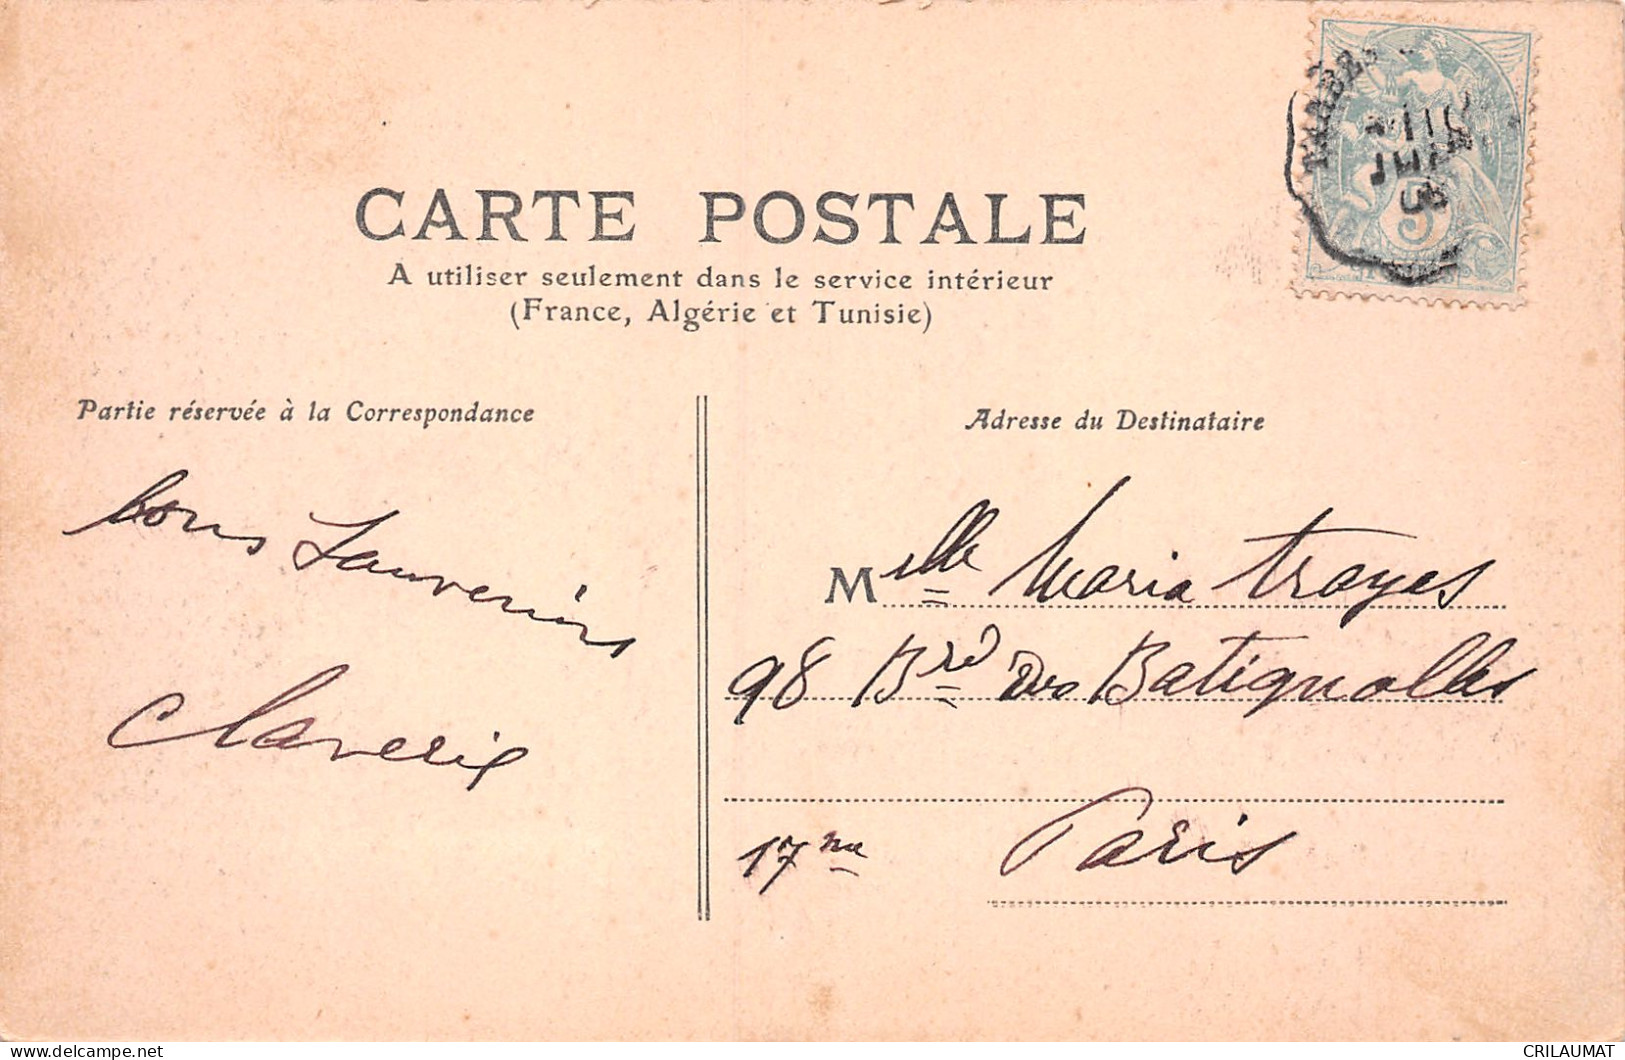 CARTE POSTALE
A utiliser seulement dans le service intérieur
(France, Algérie et Tunisie)
Partie réservée à la Correspondance
bons Souvenirs
Claverie
Adresse du Destinataire
Melle Maria Troyes
98 Brd des Batignolles
17me Paris
TARBES
5
CRILAUMAT